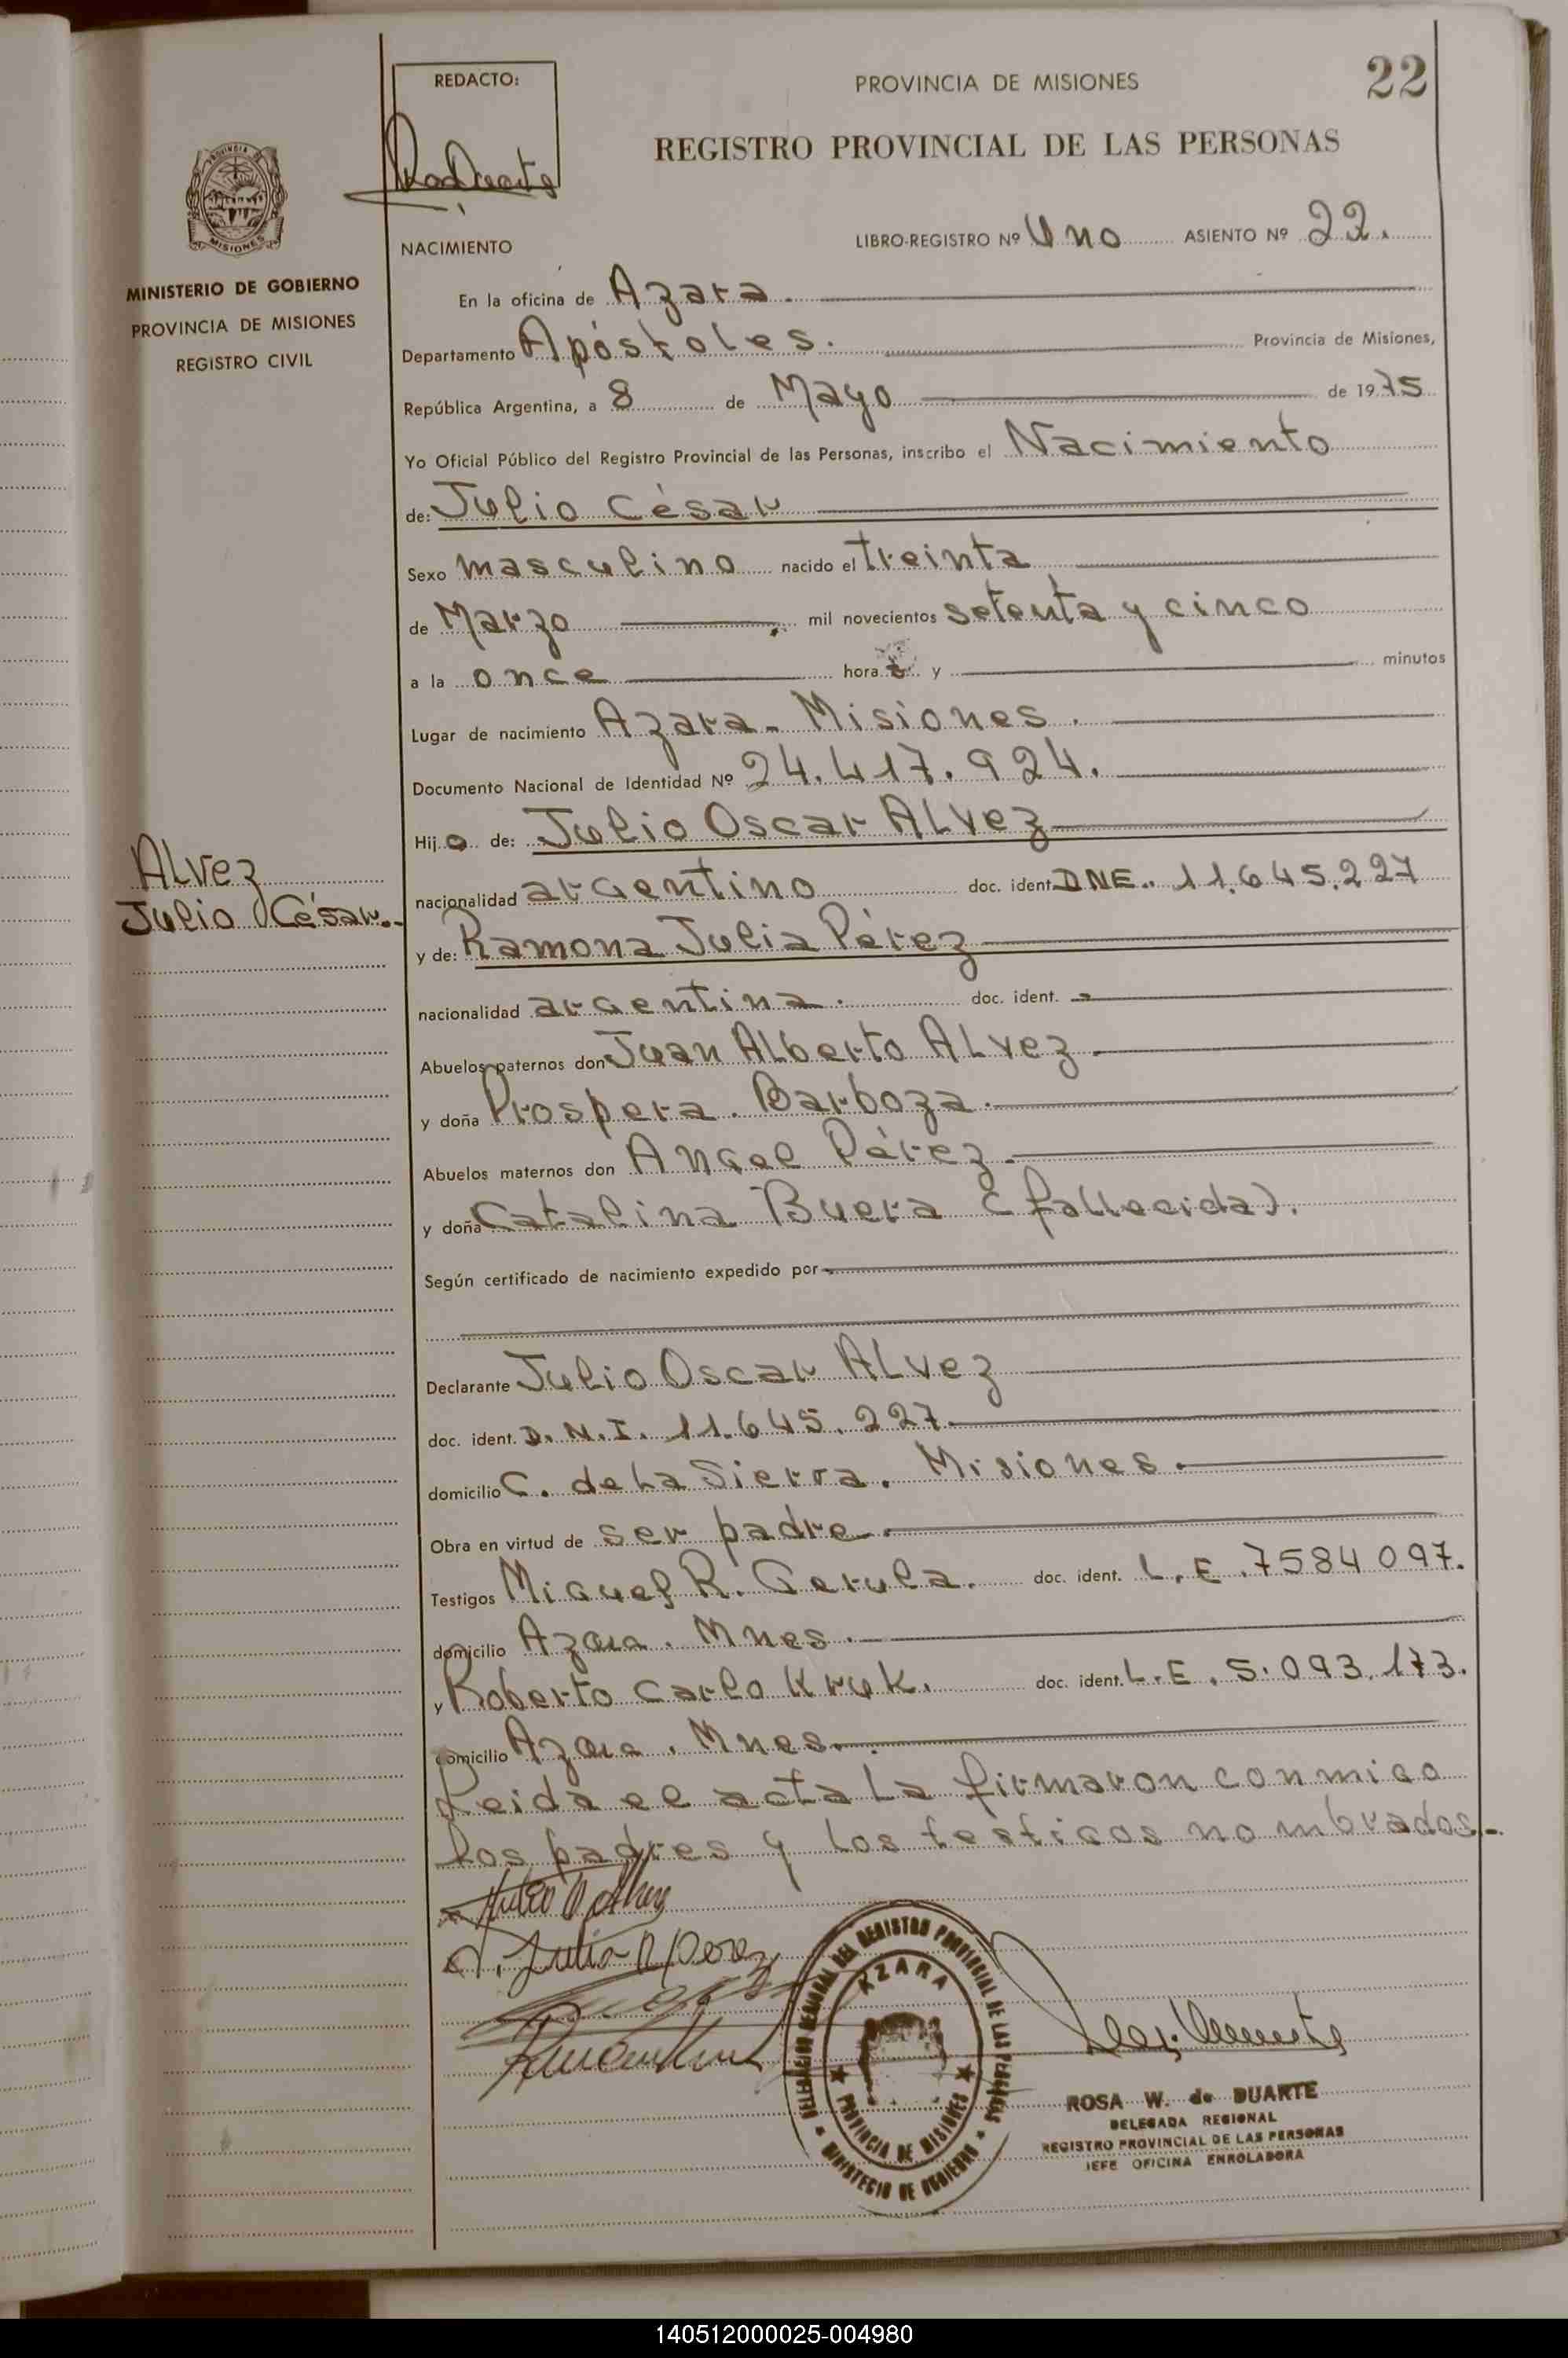 22
REDACTO:
PROVINCIA DE MISIONES
REGISTRO PROVINCIAL DE LAS PERSONAS
PROVINCIA DE
MISIONES
MINISTERIO DE GOBIERNO
PROVINCIA DE MISIONES
REGISTRO CIVIL
NACIMIENTO
LIBRO-REGISTRO Nº Uno ASIENTO Nº 22.
En la oficina de Azara.
Departamento Apóstoles. Provincia de Misiones,
República Argentina, a 8 de Mayo de 1975
Yo Oficial Público del Registro Provincial de las Personas, inscribo el Nacimiento
de: Julio César
Sexo masculino nacido el treinta
de Marzo mil novecientos setenta y cinco
a la once hora y minutos
Lugar de nacimiento Azara - Misiones.
Documento Nacional de Identidad Nº 24.417.924.
Hijo de: Julio Oscar ALvez
nacionalidad argentino doc. ident. DNE. 11.645.227
y de: Ramona Julia Pérez
nacionalidad argentina. doc. ident. -
Abuelos paternos don Juan ALberto ALvez.
y doña Prospera. Barboza.
Abuelos maternos don Angel Pérez.
y doña Catalina Buera (fallecida).
Según certificado de nacimiento expedido por
Declarante Julio Oscar ALvez
doc. ident. D.N.I. 11.645.227
domicilio C. de La Sierra. Misiones.
Obra en virtud de ser padre.
Testigos Miguel R. Gerula. doc. ident. L.E. 7584097.
domicilio Azara. Mnes.
y Roberto Carlo Kruk. doc. ident. L.E. 5.093.173.
domicilio Azara. Mnes.
Leida el acta La firmaron conmigo
los padres y los testigos nombrados.-
ALvez
Julio César.-
DELEGACION REGIONAL DEL REGISTRO PROVINCIAL DE LAS PERSONAS
AZARA
PROVINCIA DE MISIONES
MINISTERIO DE GOBIERNO
ROSA W. de DUARTE
DELEGADA REGIONAL
REGISTRO PROVINCIAL DE LAS PERSONAS
JEFE OFICINA ENROLADORA
140512000025-004980